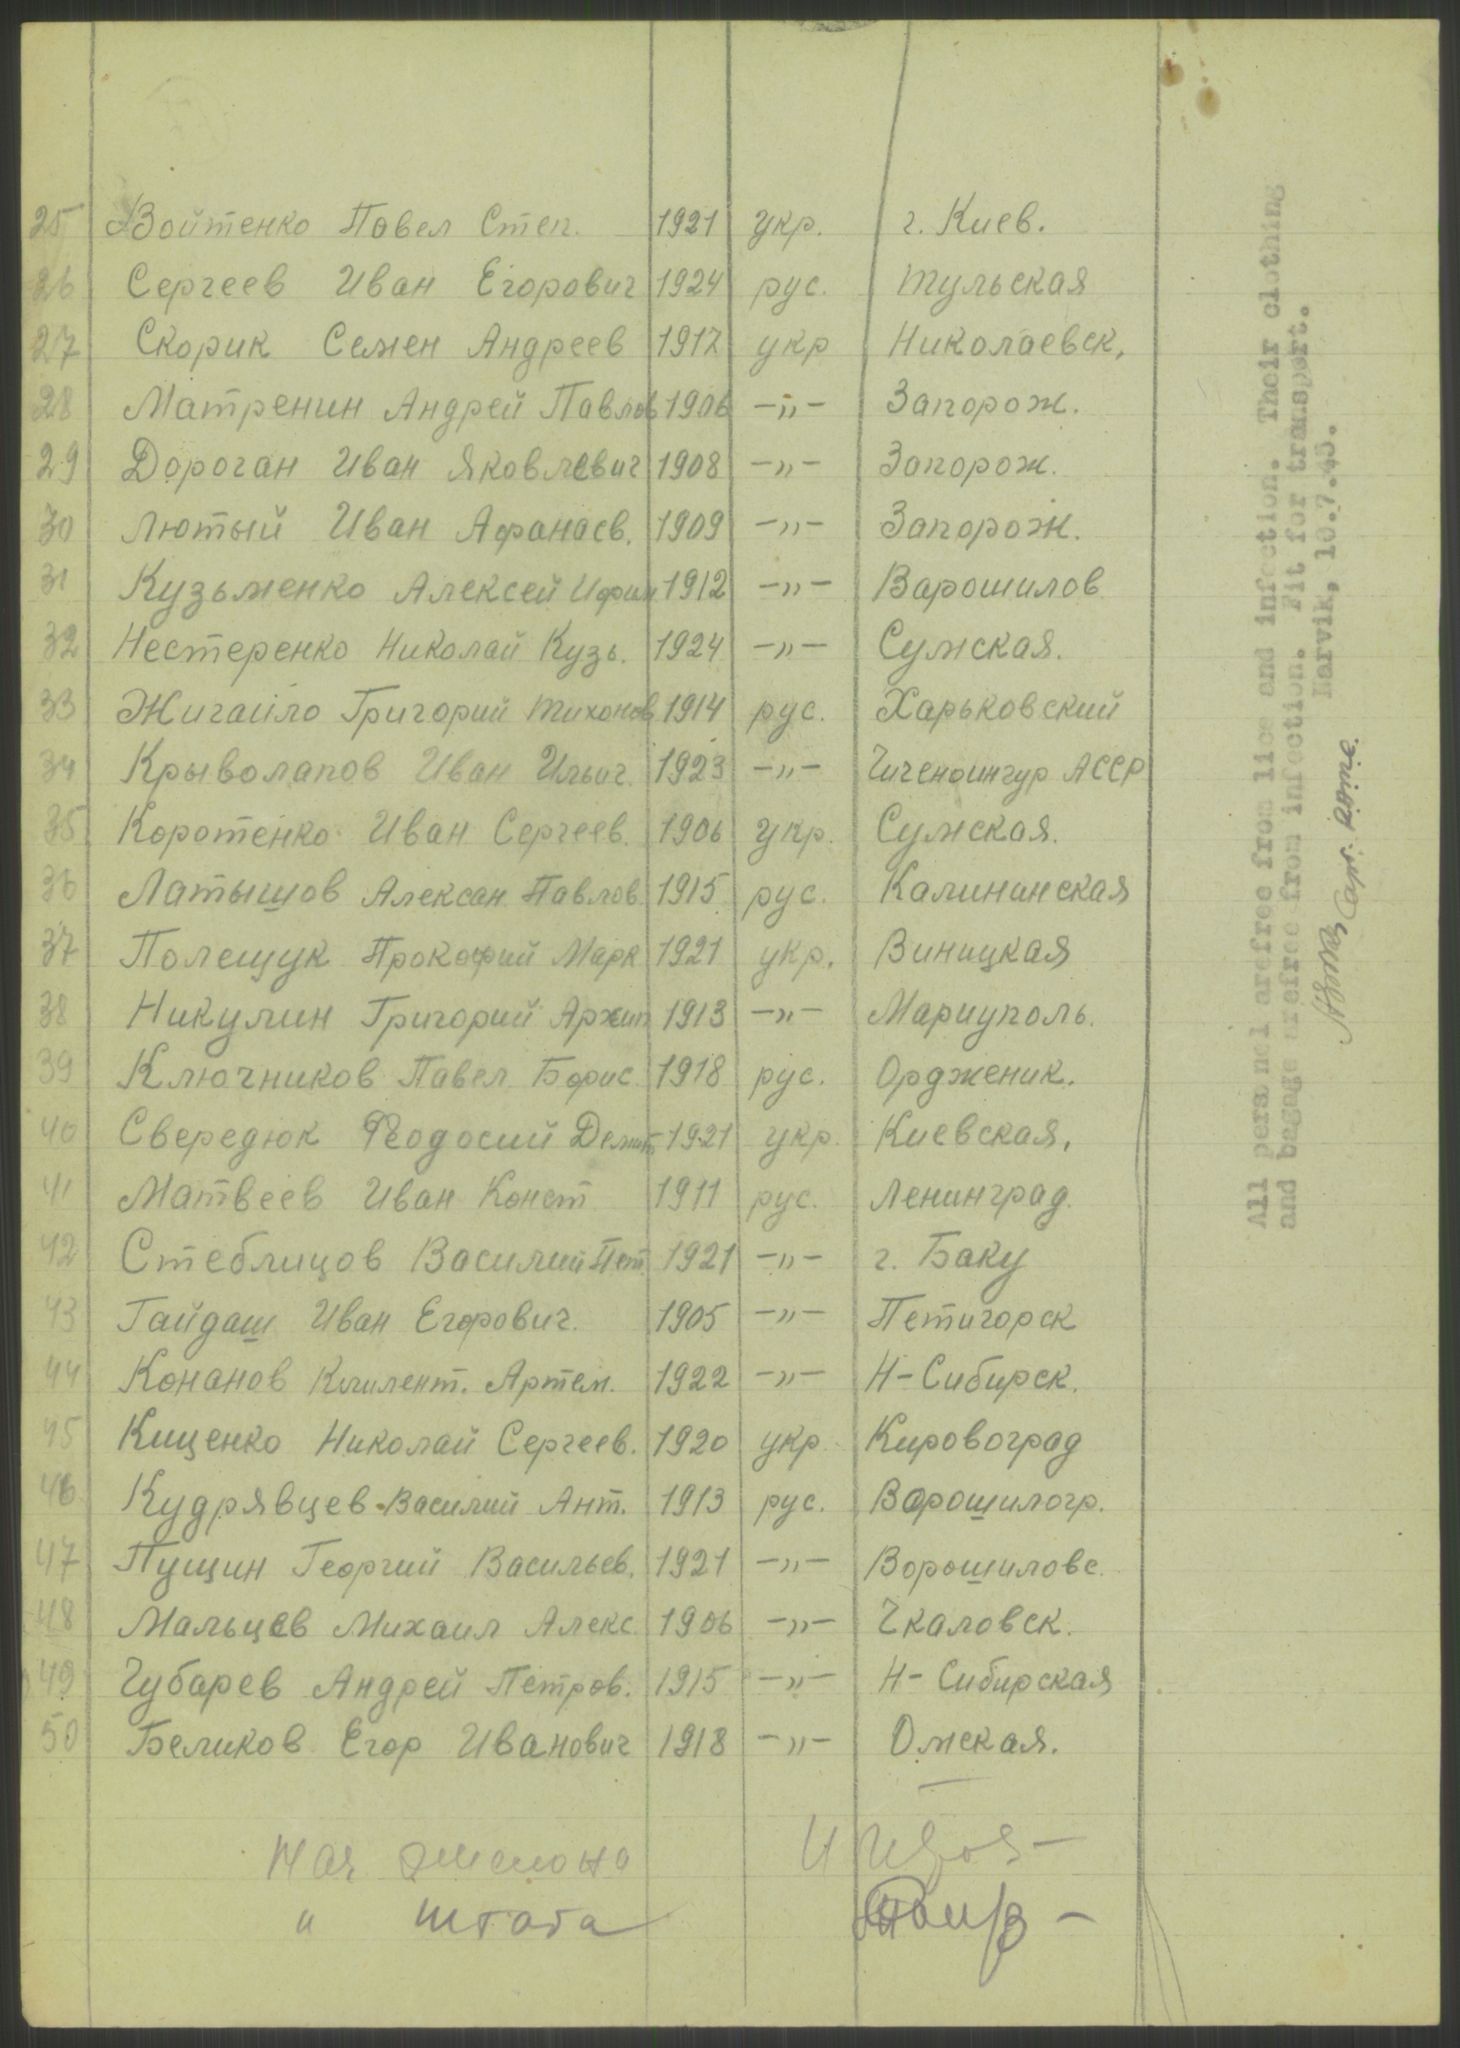 25 Войтенко Павел Степ. 1921 укр. г. Киев.
26 Сергеев Иван Егорович 1924 рус. Тульская
27 Скорик Семен Андреев 1917 укр Николаевск.
28 Матренин Андрей Павлов 1906 -"- Запорож.
29 Дороган Иван Яковлевич 1908 -"- Запорож.
30 Лютый Иван Афанасв. 1909 -"- Запорож.
31 Кузьменко Алексей Ифим 1912 -"- Варошилов
32 Нестеренко Николай Кузь. 1924 -"- Сумская.
33 Жигайло Григорий Тихонов 1914 рус. Харьковский
34 Крыволапов Иван Ильич. 1923 -"- АССР
35 Коротенко Иван Сергеев. 1906 укр. Сумская.
36 Латышов Алексан Павлов 1915 рус. Калининская
37 Полещук Прокофий Марк 1921 укр. Виницкая
38 Никулин Григорий Архип 1913 -"- Мариуполь.
39 Ключников Павел Борис 1918 рус. Ордженик.
40 Свередюк Феодосий Демит 1921 укр. Киевская.
41 Матвеев Иван Конст 1911 рус. Ленинград.
42 Стеблицов Василий Пет. 1921 -"- г. Баку
43 Гайдаш Иван Егорович. 1905 -"- Петигорск
44 Конанов Климент. Артем. 1922 -"- Н-Сибирск.
45 Кищенко Николай Сергеев. 1920 укр Кировоград
46 Кудрявцев Василий Ант. 1913 рус. Ворошилогр.
47 Пущин Георгий Васильев. 1921 -"- Ворошиловс.
48 Мальцев Михаил Алекс. 1906 -"- Чкаловск.
49 Чубарев Андрей Петров. 1915 -"- Н-Сибирская
50 Беликов Егор Иванович 1918 -"- Омская.
Нач эшелона
" штаба
All personel arefree from lice and infection. Their clothing
and bagage arefree from infection. Fit for transport.
Narvik, 10.7.45.
Capt.